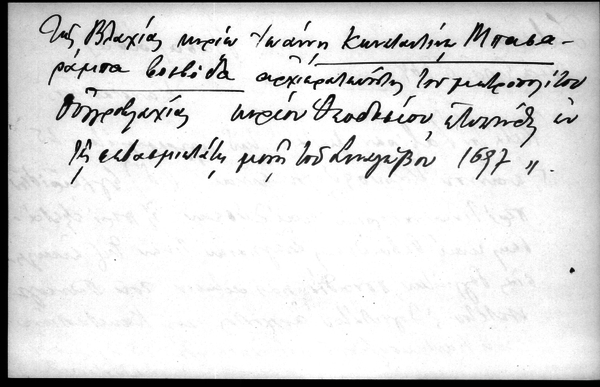 τῆς Βλαχίας κυρίου Ἰωάννη Κωνσταντίνου Μπασα-
ράμπα βοεβόδα ἀρχιερατεύοντος τοῦ μητροπολίτου
Οὑγγροβλαχίας κυρίου Θεοδοσίου, ἐτυπώθη ἐν
τῇ σεβασμιωτάτῃ μονῇ τοῦ Συναγώβου 1697 „.